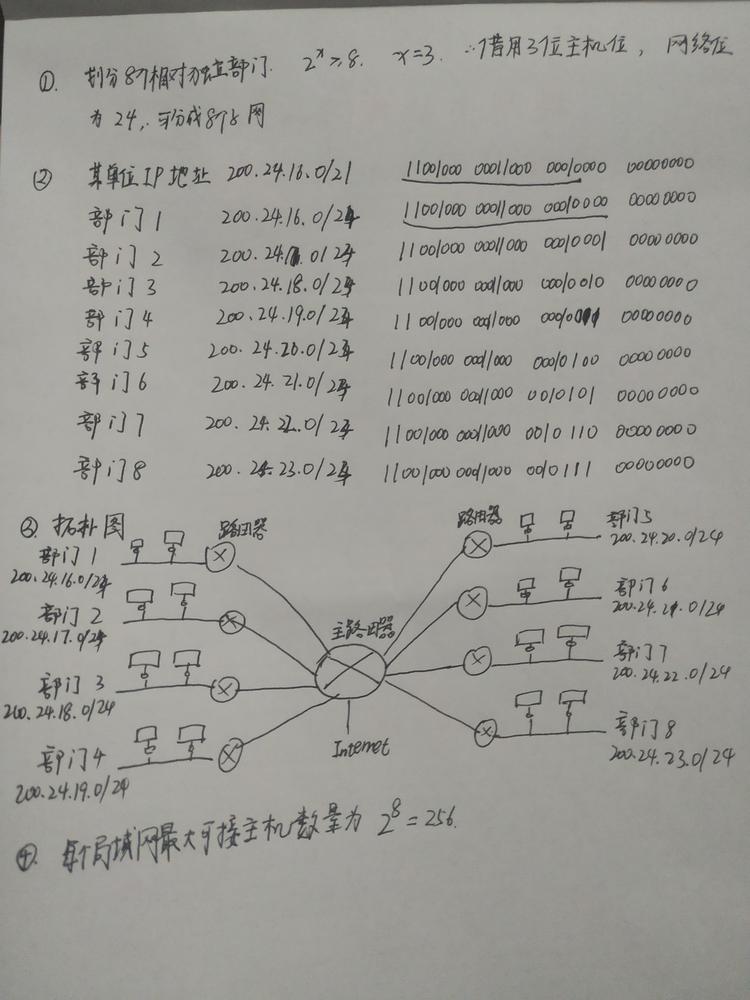 ①. 划分8个相对独立部门. 2^x ≥ 8. x=3. ∴借用3位主机位, 网络位
为 24, ∴可分成8个子网
② 某单位IP地址 200.24.16.0/21 11001000 00011000 00010000 00000000
部门1 200.24.16.0/24 11001000 00011000 00010000 00000000
部门2 200.24.17.0/24 11001000 00011000 00010001 00000000
部门3 200.24.18.0/24 11001000 00011000 00010010 00000000
部门4 200.24.19.0/24 11001000 00011000 00010011 00000000
部门5 200.24.20.0/24 11001000 00011000 00010100 00000000
部门6 200.24.21.0/24 11001000 00011000 00010101 00000000
部门7 200.24.22.0/24 11001000 00011000 00010110 00000000
部门8 200.24.23.0/24 11001000 00011000 00010111 00000000
③ 拓扑图
路由器
部门1
200.24.16.0/24
部门2
200.24.17.0/24
部门3
200.24.18.0/24
部门4
200.24.19.0/24
主路由器
Internet
路由器
部门5
200.24.20.0/24
部门6
200.24.21.0/24
部门7
200.24.22.0/24
部门8
200.24.23.0/24
④. 每个局域网最大可接主机数量为 2^8=256.